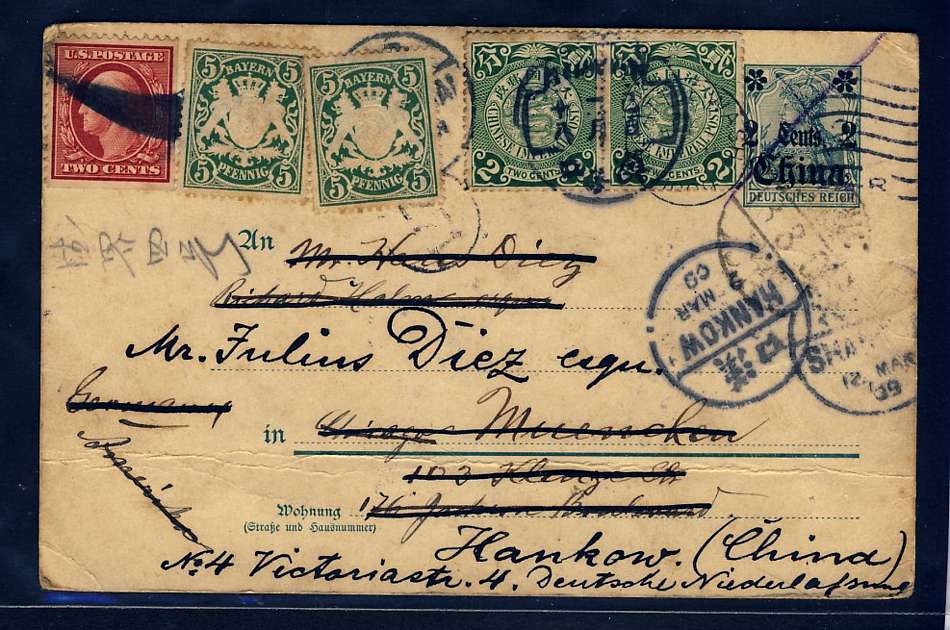 U.S. POSTAGE
TWO CENTS
5 BAYERN 5
5 PFENNIG 5
5 BAYERN 5
5 PFENNIG 5
CHINESE IMPERIAL POST
2 TWO CENTS
CHINESE IMPERIAL POST
TWO CENTS 2
2 Cents 2
China
DEUTSCHES REICH
An
Mr. Hans Diez
Richard Holm
Mr. Julius Diez esqu.
HANKOW
9 MAR 09
12 MAR 09
Germany
America
in
Chicago Muenchen
103 Klenze Str
Wohnung
(Straße und Hausnummer)
176 Jackson Boulevard.
Hankow. (China)
No. 4 Victoriastr. 4. Deutsche Niederlaßung